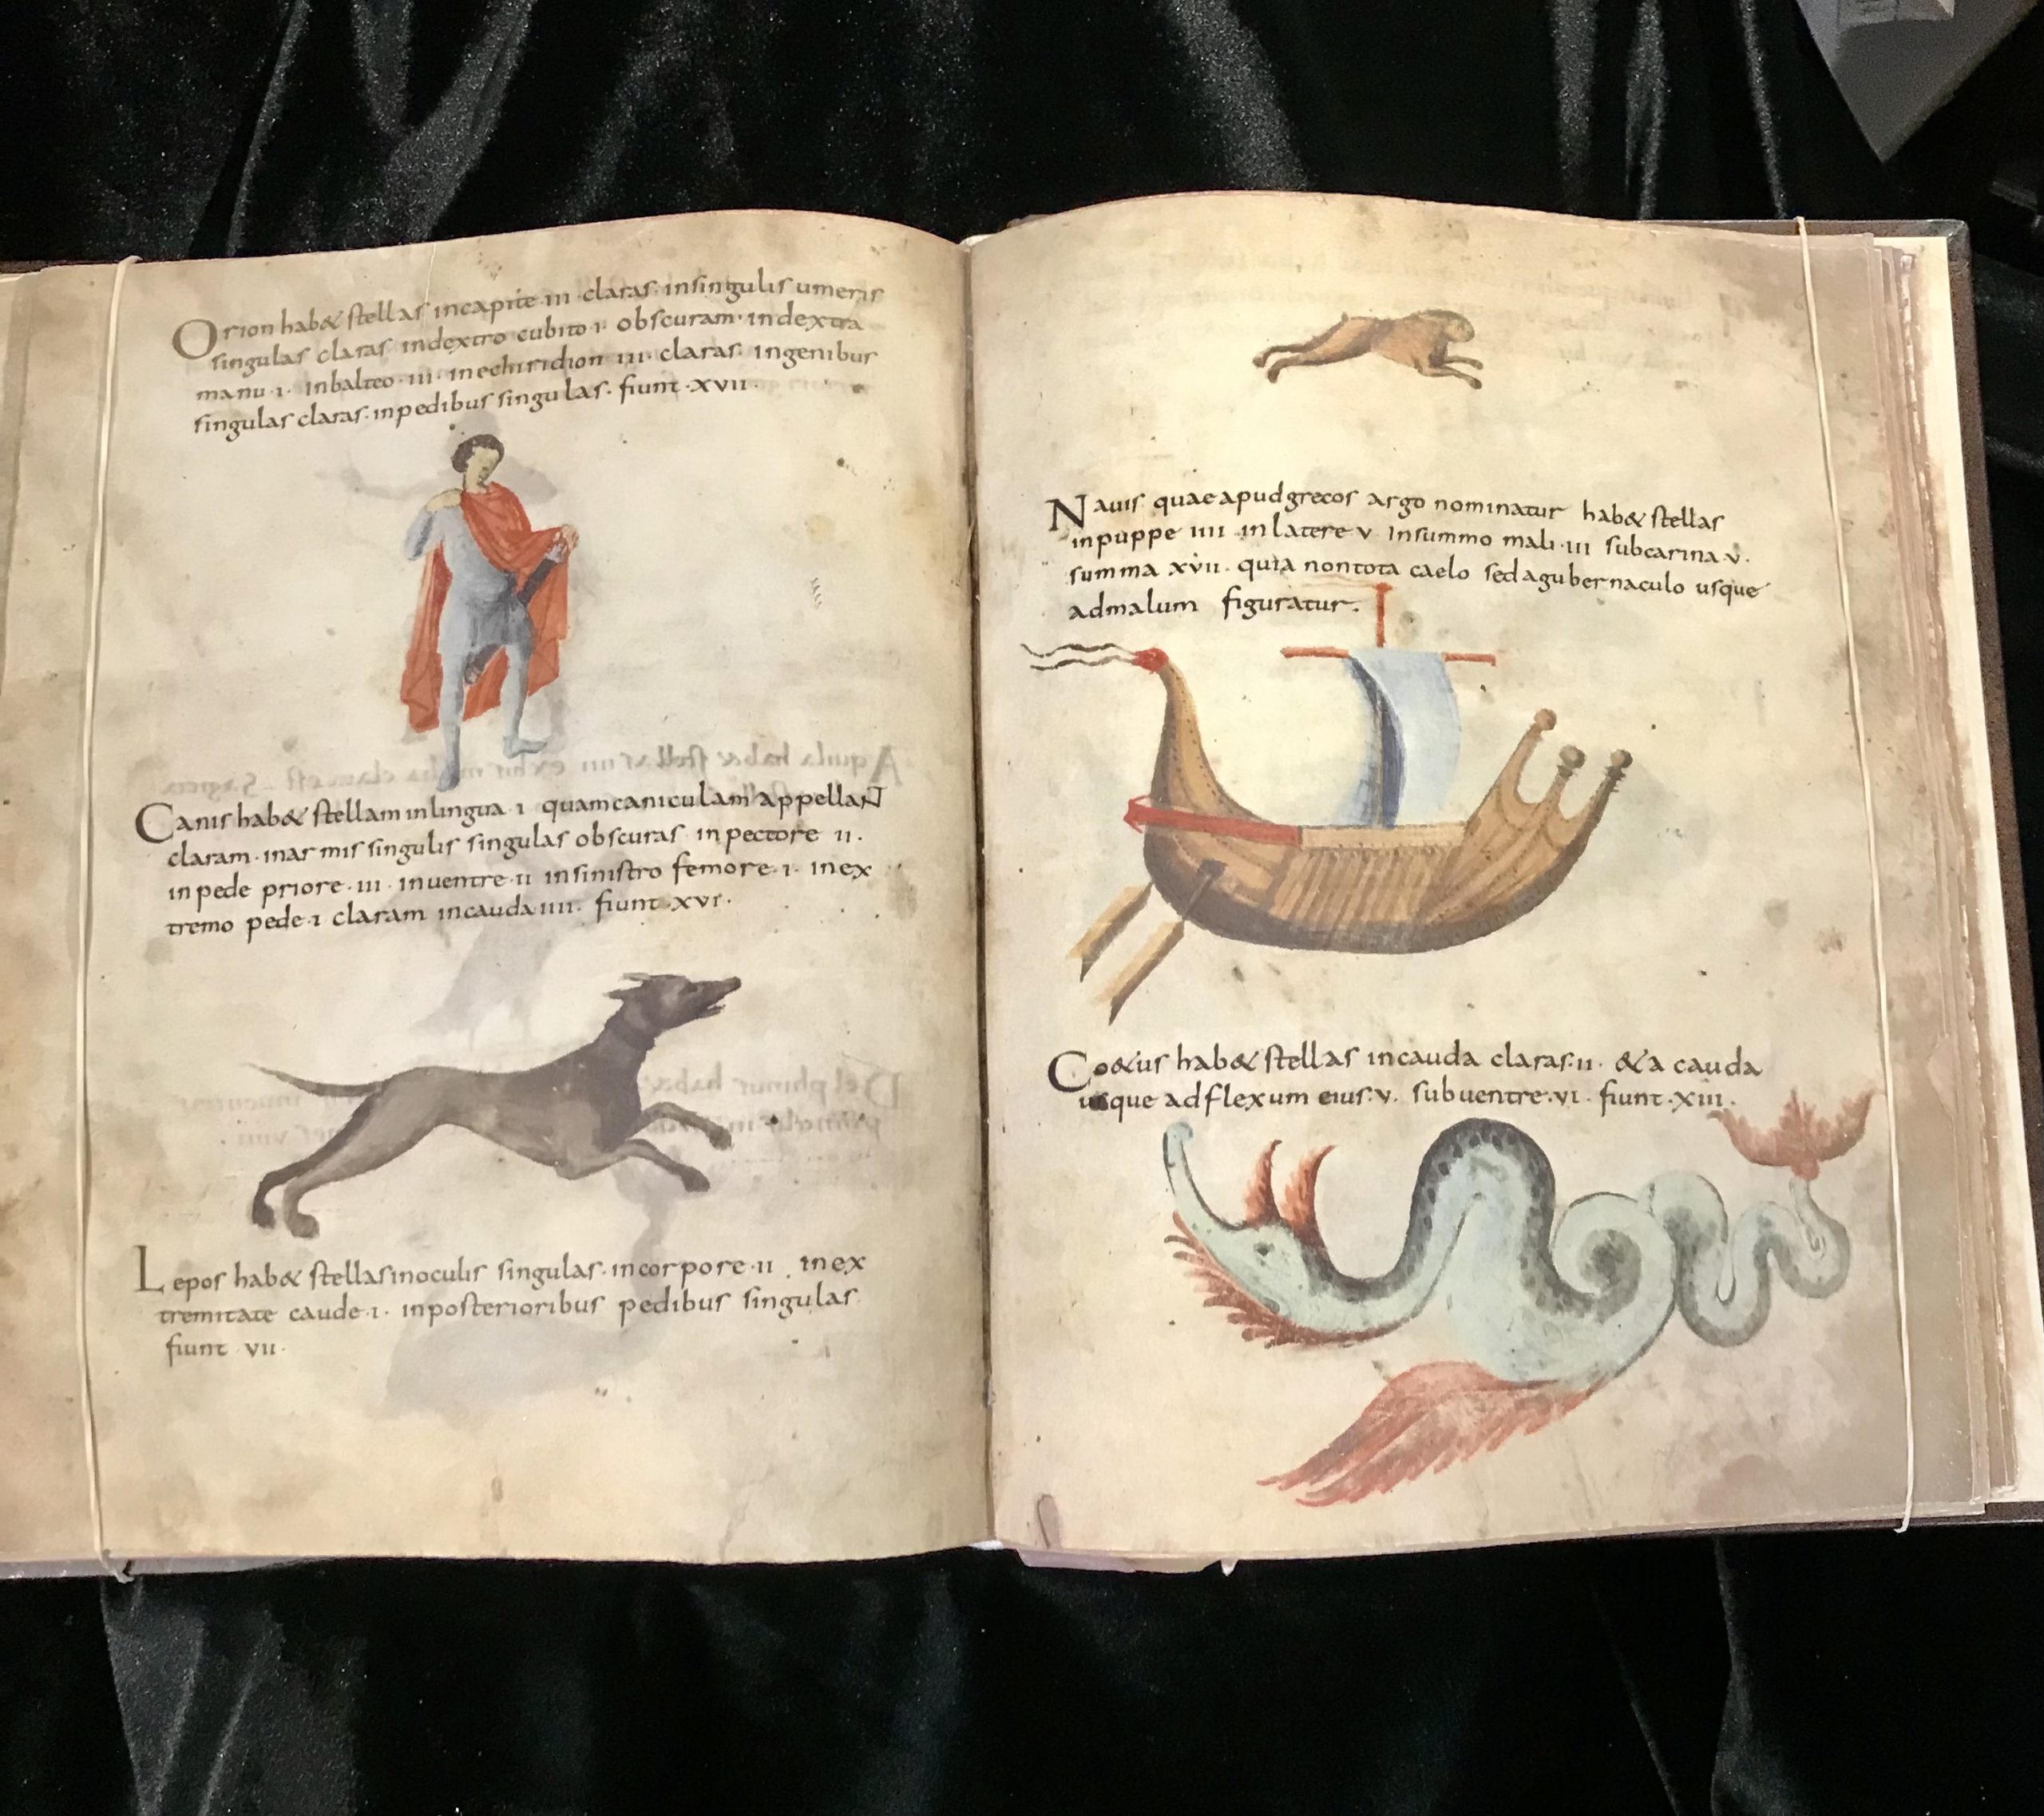 Orion hab& stellas incapite·III·claras·insingulis umeris
singulas claras indextro cubito·I·obscuram·indextra
manu·I·inbalteo·III·inechiridion III·claras·ingenibus
singulas claras·inpedibus singulas·fiunt·XVII·
Canis hab& stellam inlingua I quamcaniculam appellaNT
claram·inarmis singulis singulas obscuras inpectore II·
inpede priore·III·inuentre·II insinistro femore·I·inex
tremo pede·I claram incauda IIII·fiunt·XVI·
Lepos hab& stellas inoculis singulas·incorpore·II·inex
tremitate caude·I·inposterioribus pedibus singulas
fiunt VII·
Nauis quae apud grecos argo nominatur hab& stellas
inpuppe IIII inlatere V insummo mali·III subcarina V·
summa XVII·quia nontota caelo sed agubernaculo usque
admalum figuratur·
Co&us hab& stellas incauda claras·II·&a cauda
usque adflexum eius·V·subuentre·VI·fiunt·XIII·